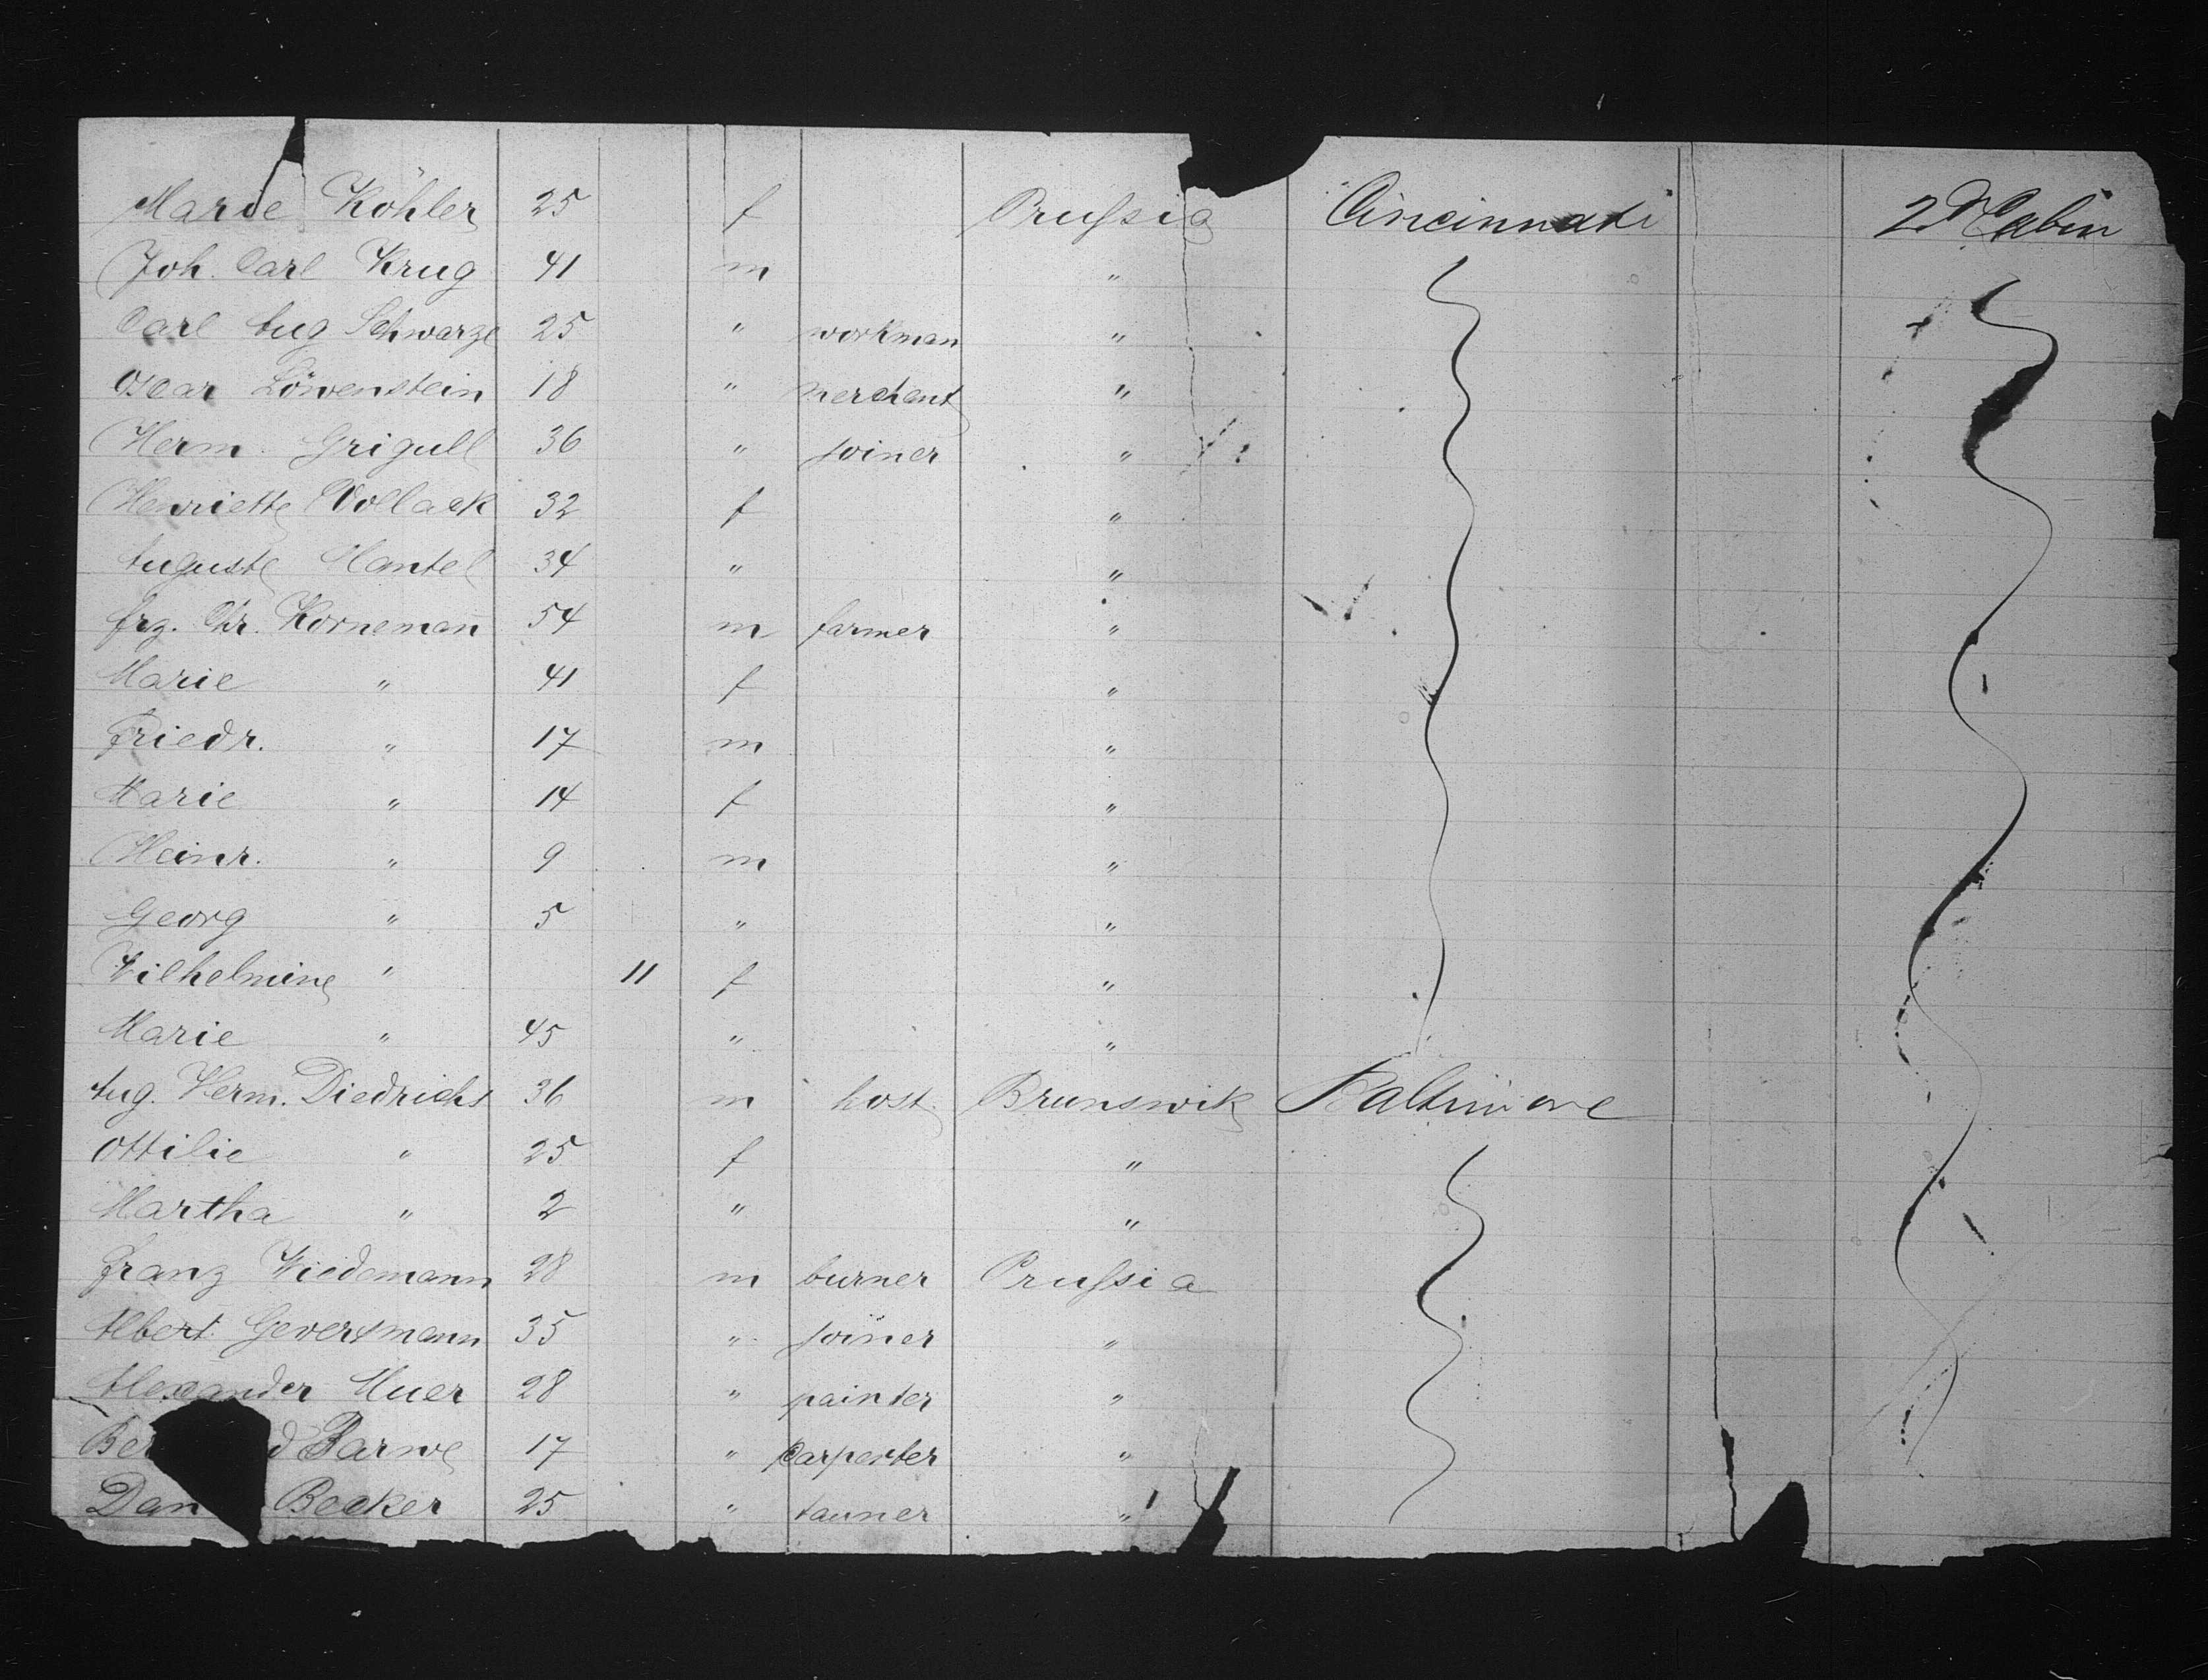 Marie Köhler 25 f Prussia Cincinnati 2d Cabin
Joh. Carl Krug 41 m "
Carl Aug Schwarze 25 " workman "
Oscar Löwenstein 18 " merchant "
Herm. Grigull 36 " joiner "
Henriette Wollack 32 f "
Auguste Hantel 34 " "
frz. Chr. Korneman 54 m farmer "
Marie " 41 f "
Friedr. " 17 m "
Marie " 14 f "
Heinr. " 9 m "
Georg " 5 " "
Wilhelmine " 11 f "
Marie " 45 " "
Aug. Herm. Diedrichs 36 m host. Brunswik Baltimore
Ottilie " 25 f "
Martha " 2 " "
Franz Wiedemann 28 m burner Prussia
Albert Gevertmann 35 " joiner "
Alexander Huer 28 " painter "
Ber d Barwe 17 " Carpenter "
Dan Becker 25 " tanner "